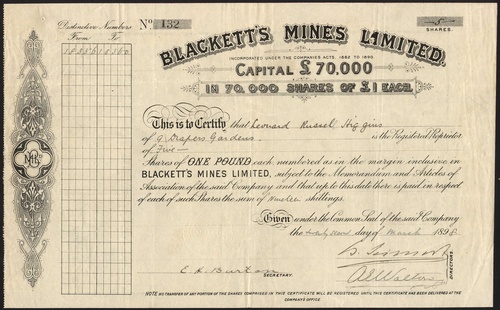 Distinctive Numbers
From To
10356 10360
No. 132
5
SHARES.
BLACKETT'S MINES LIMITED.
INCORPORATED UNDER THE COMPANIES ACTS, 1862 TO 1890.
CAPITAL £70,000
IN 70,000 SHARES OF £1 EACH.
This is to Certify that Leonard Russel Higgins
of 9 Drapers Gardens is the Registered Proprietor
of Five
Shares of ONE POUND each numbered as in the margin inclusive in
BLACKETT'S MINES LIMITED, subject to the Memorandum and Articles of
Association of the said Company and that up to this date there is paid in respect
of each of such Shares the sum of Nineteen shillings.
Given under the Common Seal of the said Company
the day of March 1898
E. H. Burton
SECRETARY.
DIRECTORS
NOTE NO TRANSFER OF ANY PORTION OF THE SHARES COMPRISED IN THIS CERTIFICATE WILL BE REGISTERED UNTIL THIS CERTIFICATE HAS BEEN DELIVERED AT THE
COMPANY'S OFFICE.